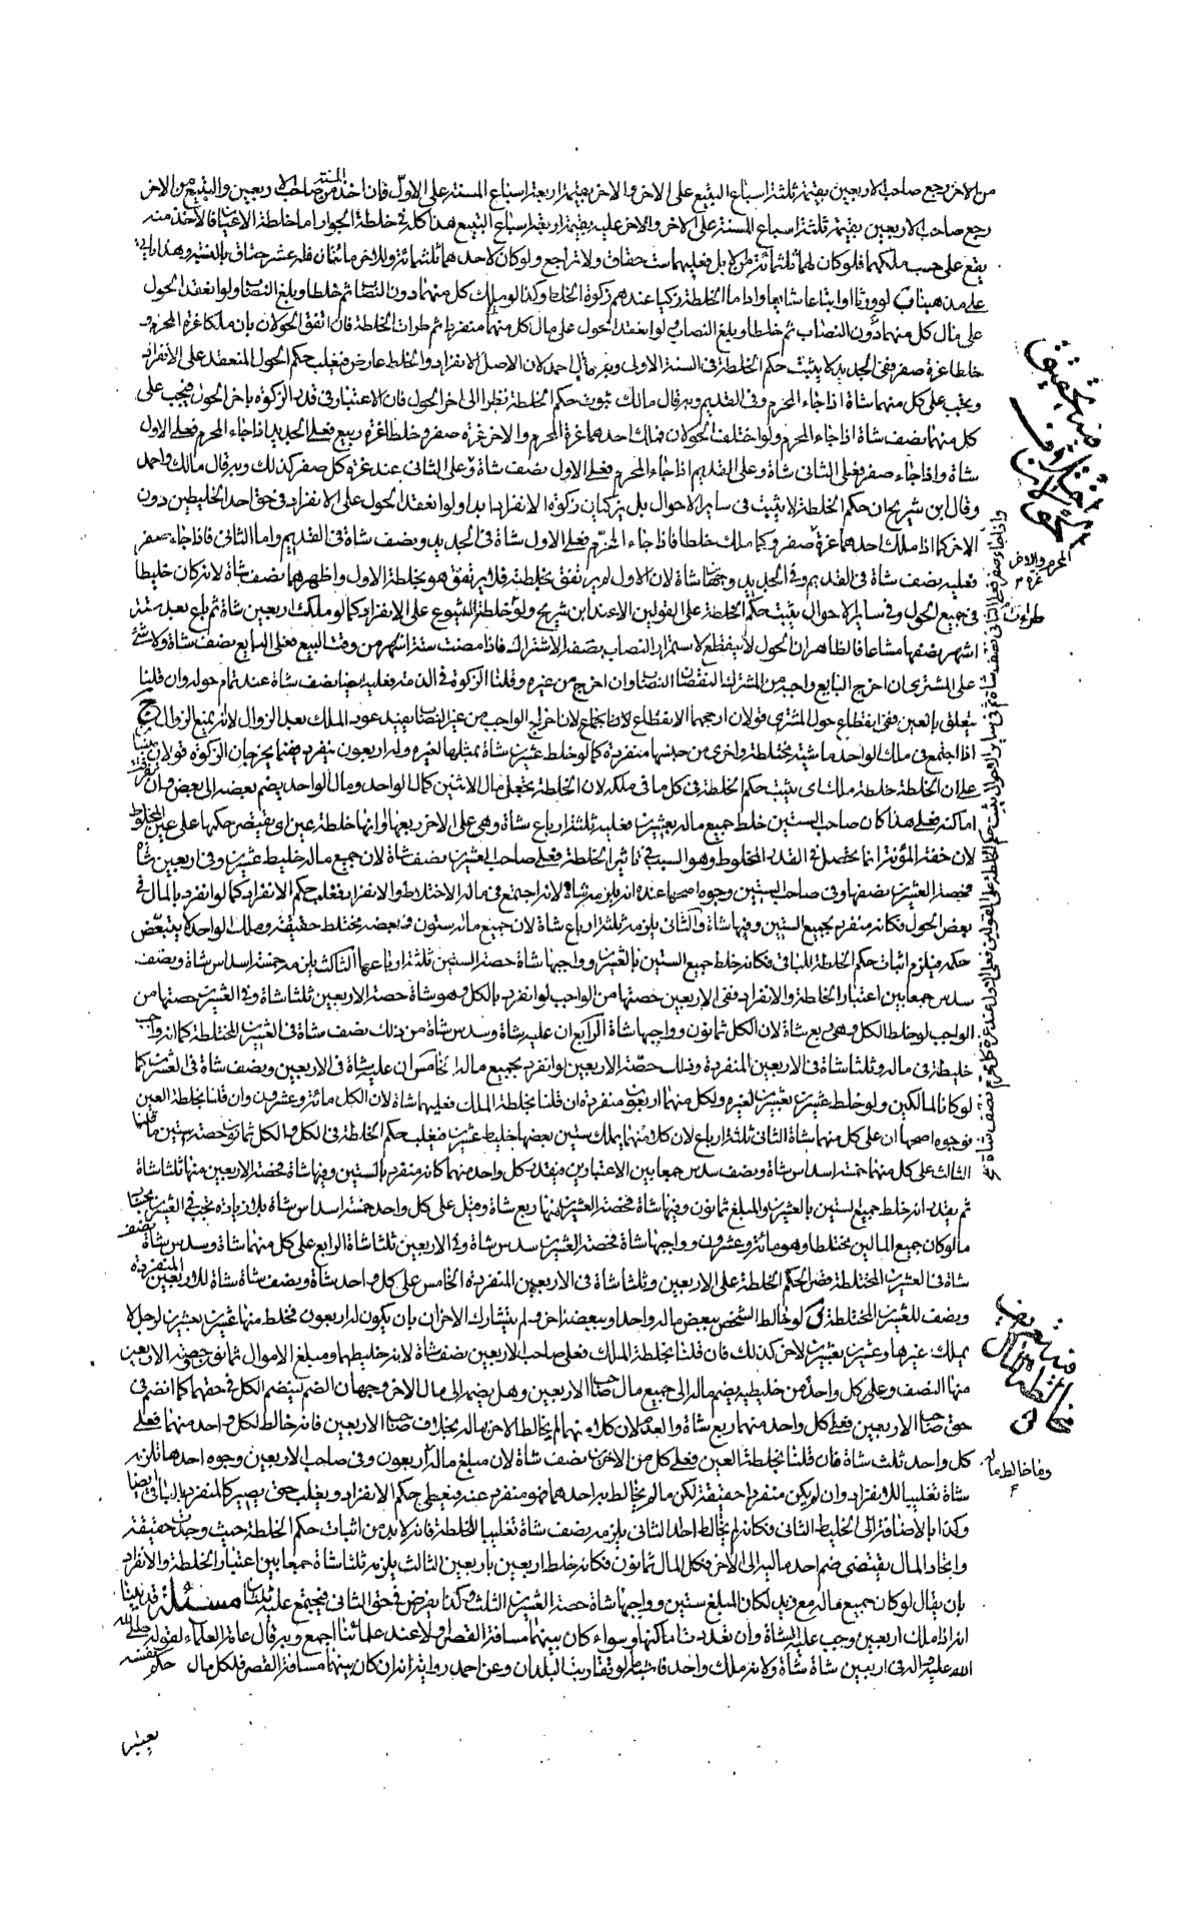 من الاخر رجع صاحب الاربعين بقيمة ثلثة اسباع التبيع على الاخر والاخر بقيمة اربعة اسباع المسنة على الاول فان اخذ المسنة من صاحب الاربعين والتبيع من الاخر
رجع صاحب الاربعين بقيمة ثلثة اسباع المسنة على الاخر والاخر عليه بقيمة اربعة اسباع التبيع هذا كله في خلطة الجوار اما خلطة الاعيان فالاخذ منه
يقع على حسب ملكهما فلو كان لهما ثلثمائة من الابل فعليهما ست حقاق ولا تراجع ولو كان لاحدهما ثلثمائة وللاخر مائتان فله عشر حقاق بالنسبة وهذا
على مال كل منهما دون النصاب ثم خلطا وبلغ النصاب ولو انعقد الحول على مال كل منهما منفردا ثم طرات الخلطة فان اتفق الحولان بان ملكا غرة المحرم و
خلطا غرة صفر ففي الجديد لا يثبت حكم الخلطة في السنة الاولى وبه قال احمد لان الاصل الانفراد والخلط عارض فيغلب حكم الحول المنعقد على الانفراد
ويجب على كل منهما شاة اذا جاء المحرم وفي القديم وبه قال مالك ثبوت حكم الخلطة نظرا الى اخر الحول فان الاعتبار في قدر الزكوة باخر الحول فيجب على
كل منهما نصف شاة اذا جاء المحرم ولو اختلف الحولان فملك احدهما غرة المحرم والاخر غرة صفر وخلطا غرة ربيع فعلى الجديد اذا جاء المحرم فعلى الاول
شاة واذا جاء صفر فعلى الثاني شاة وعلى القديم اذا جاء المحرم فعلى الاول نصف شاة وعلى الثاني عند غرة كل صفر كذلك وبه قال مالك واحمد
وقال ابن شريح ان حكم الخلطة لا يثبت في ساير الاحوال بل يزكيان زكوة الانفراد ابدا ولو انعقد الحول على الانفراد في حق احد الخليطين دون
الاخر كما اذا ملك احدهما غرة صفر وكما ملك خلطا فاذا جاء المحرم فعلى الاول شاة في الجديد ونصف شاة في القديم واما الثاني فاذا جاء صفر
فعليه نصف شاة في القديم وفي الجديد وجهان شاة لان الاول لم يرتفق بخلطته فلا يرتفق هو بخلطة الاول واظهرهما نصف شاة لانه كان خليطا
في جميع الحول وفي ساير الاحوال يثبت حكم الخلطة على القولين الا عند ابن شريح ولو خلطة الشيوع على الانفراد كما لو ملك اربعين شاة ثم باع بعد ستة
اشهر نصفها مشاعا فالظاهر ان الحول لا ينقطع لاستمرار النصاب بصفة الاشتراك فاذا مضت ستة اشهر من وقت البيع فعلى البايع نصف شاة ولا شئ
على المشتري ان اخرج البايع واجبه من المشترك لنقصان النصاب وان اخرج من غيره وقلنا الزكوة في الذمة فعليه ايضا نصف شاة عند تمام حوله وان قلنا
يتعلق بالعين ففي انقطاع حول المشتري قولان ارجحهما الانقطاع لان اخراج الواجب من غير النصاب يفيد عود الملك بعد الزوال لا انه يمنع الزوال ج
اذا اجتمع في ملك الواحد ماشية مختلطة واخرى من جنسها منفردة كما لو خلط عشرين شاة بمثلها لغيره وله اربعون منفردة فيما يخرجان الزكوة قولان
على ان الخلطة خلطة ملك اي يثبت حكم الخلطة في كل ما في ملكه لان الخلطة تجعل مال الاثنين كمال الواحد ومال الواحد يضم بعضه الى بعض وان تفرقت
اماكنه فعلى هذا كان صاحب الستين خلط جميع ماله بعشرين فعليه ثلثة ارباع شاة وهي على الاخر ربعها وانها خلطة عين اي يقتصر حكمها على عين المخلوط
لان خفة المؤنة انما تحصل في القدر المخلوط وهو السبب في تاثير الخلطة فعلى صاحب العشرين نصف شاة لان جميع ماله خليط عشرين وفي اربعين شاة
فحصة العشرين نصفها وفي صاحب الستين وجوه اصحها عنده انه يلزمه شاة لانه اجتمع في ماله الاختلاط والانفراد فغلب حكم الانفراد كما لو انفرد بالمال في
بعض الحول فكانه منفرد بجميع الستين وفيها شاة والثاني يلزمه ثلثة ارباع شاة لان جميع ماله ستون وبعضه مختلط حقيقة وملك الواحد لا يتبعض
حكمه فيلزم اثبات حكم الخلطة للباقي فكانه خلط جميع الستين بالعشرين وواجبها شاة حصة الستين ثلثة ارباعها الثالث يلزمه خمسة اسداس شاة ونصف
سدس جمعا بين اعتبار الخلطة والانفراد ففي الاربعين حصتها من الواجب لو انفرد بالكل وهو شاة حصة الاربعين ثلثا شاة وفي العشرين حصتها من
الواجب لو خلط الكل وهي ربع شاة لان الكل ثمانون وواجبها شاة الرابع ان عليه شاة وسدس شاة من ذلك نصف شاة في العشرين المختلطة كما انه واجب
خليطه في ماله وثلثا شاة في الاربعين المنفردة وذلك حصة الاربعين لو انفرد بجميع ماله الخامس ان عليه شاة في الاربعين ونصف شاة في العشرين كما
لو كانا لمالكين ولو خلط عشرين بعشرين لغيره ولكل منهما اربعون منفردة ان قلنا بخلطة الملك فعليهما شاة لان الكل مائة وعشرون وان قلنا بخلطة العين
فوجوه اصحها ان على كل منهما شاة الثاني ثلثة ارباع لان كلا منهما يملك ستين بعضها خليط عشرين فيغلب حكم الخلطة في الكل والكل ثمانون حصة ستين ما قلنا
الثالث على كل منهما خمسة اسداس شاة ونصف سدس جمعا بين الاعتبارين فيقدر كل واحد منهما كانه منفرد بالستين وفيها شاة فحصة الاربعين منها ثلثا شاة
ثم يقدر انه خلط جميع الستين بالعشرين والمبلغ ثمانون وفيها شاة فحصة العشرين منها ربع شاة وقيل على كل واحد خمسة اسداس شاة بلا زيادة تجب في العشرين بحساب
ما لو كان جميع المالين مختلطا وهو مائة وعشرون وواجبها شاة فحصة العشرين سدس شاة وفي الاربعين ثلثا شاة الرابع على كل منهما شاة وسدس شاة نصف
شاة في العشرين المختلطة قصرا لحكم الخلطة على الاربعين وثلثا شاة في الاربعين المنفردة الخامس على كل واحد شاة ونصف شاة شاة للاربعين المنفردة
ونصف للعشرين المختلطة لو خالط الشخص ببعض ماله واحدا وببعضه اخر ولم يتشارك الاخران بان يكون له اربعون فخلط منها عشرين بعشرين لرجل لا
يملك غيرها وعشرين بعشرين لاخر كذلك فان قلنا بخلطة الملك فعلى صاحب الاربعين نصف شاة لانه خليطهما ومبلغ الاموال ثمانون حصة الاربعين
منها النصف وعلى كل واحد من خليطيه يضم ماله الى جميع مال صاحب الاربعين وهل يضم الى مال الاخر وجهان الضم لينضم الكل في حقهما كما انضم في
حق صاحب الاربعين فعلى كل واحد منهما ربع شاة والعدم لان كلا منهما لم يخالط الاخر بماله بخلاف صاحب الاربعين فانه خالط لكل واحد منهما فعلى
كل واحد ثلث شاة فان قلنا بخلطة العين فعلى كل من الاخرين نصف شاة لان مبلغ ماله اربعون وفي صاحب الاربعين وجوه احدها تلزمه
شاة تغليبا للانفراد وان لم يكن منفردا حقيقة لكن ما لم يخالط به احدهما فهو منفرد عنه فيعطى حكم الانفراد ويغلب حتى يصير كالمنفرد بالباقي ايضا
وكذا بالاضافة الى الخليط الثاني فكانه لم يخالط احدا الثاني يلزمه نصف شاة تغليبا للخلطة فانه لا بد من اثبات حكم الخلطة حيث وجدت حقيقة
واتحاد المال يقتضي ضم احد ماليه الى الاخر فكل المال ثمانون فكانه خلط اربعين باربعين الثالث يلزمه ثلثا شاة جمعا بين اعتبار الخلطة والانفراد
بان يقال لو كان جميع ماله مع زيد لكان المبلغ ستين وواجبها شاة حصة العشرين الثلث وكذا يفرض في حق الثاني فيجتمع عليه ثلثان مسئلة قد بينا
انه اذا ملك اربعين وجب عليه الشاة وان تعددت اماكنها وسواء كان بينهما مسافة القصر او لا عند علمائنا اجمع وبه قال عامة العلماء لقوله صلى الله
عليه واله في اربعين شاة شاة ولانه ملك واحد فاشبه ما لو تقاربت البلدان وعن احمد رواية انه ان كان بينهما مسافة القصر فلكل مال حكم نفسه
المحرم والاخر غرة
طرات
وما خالط ماله